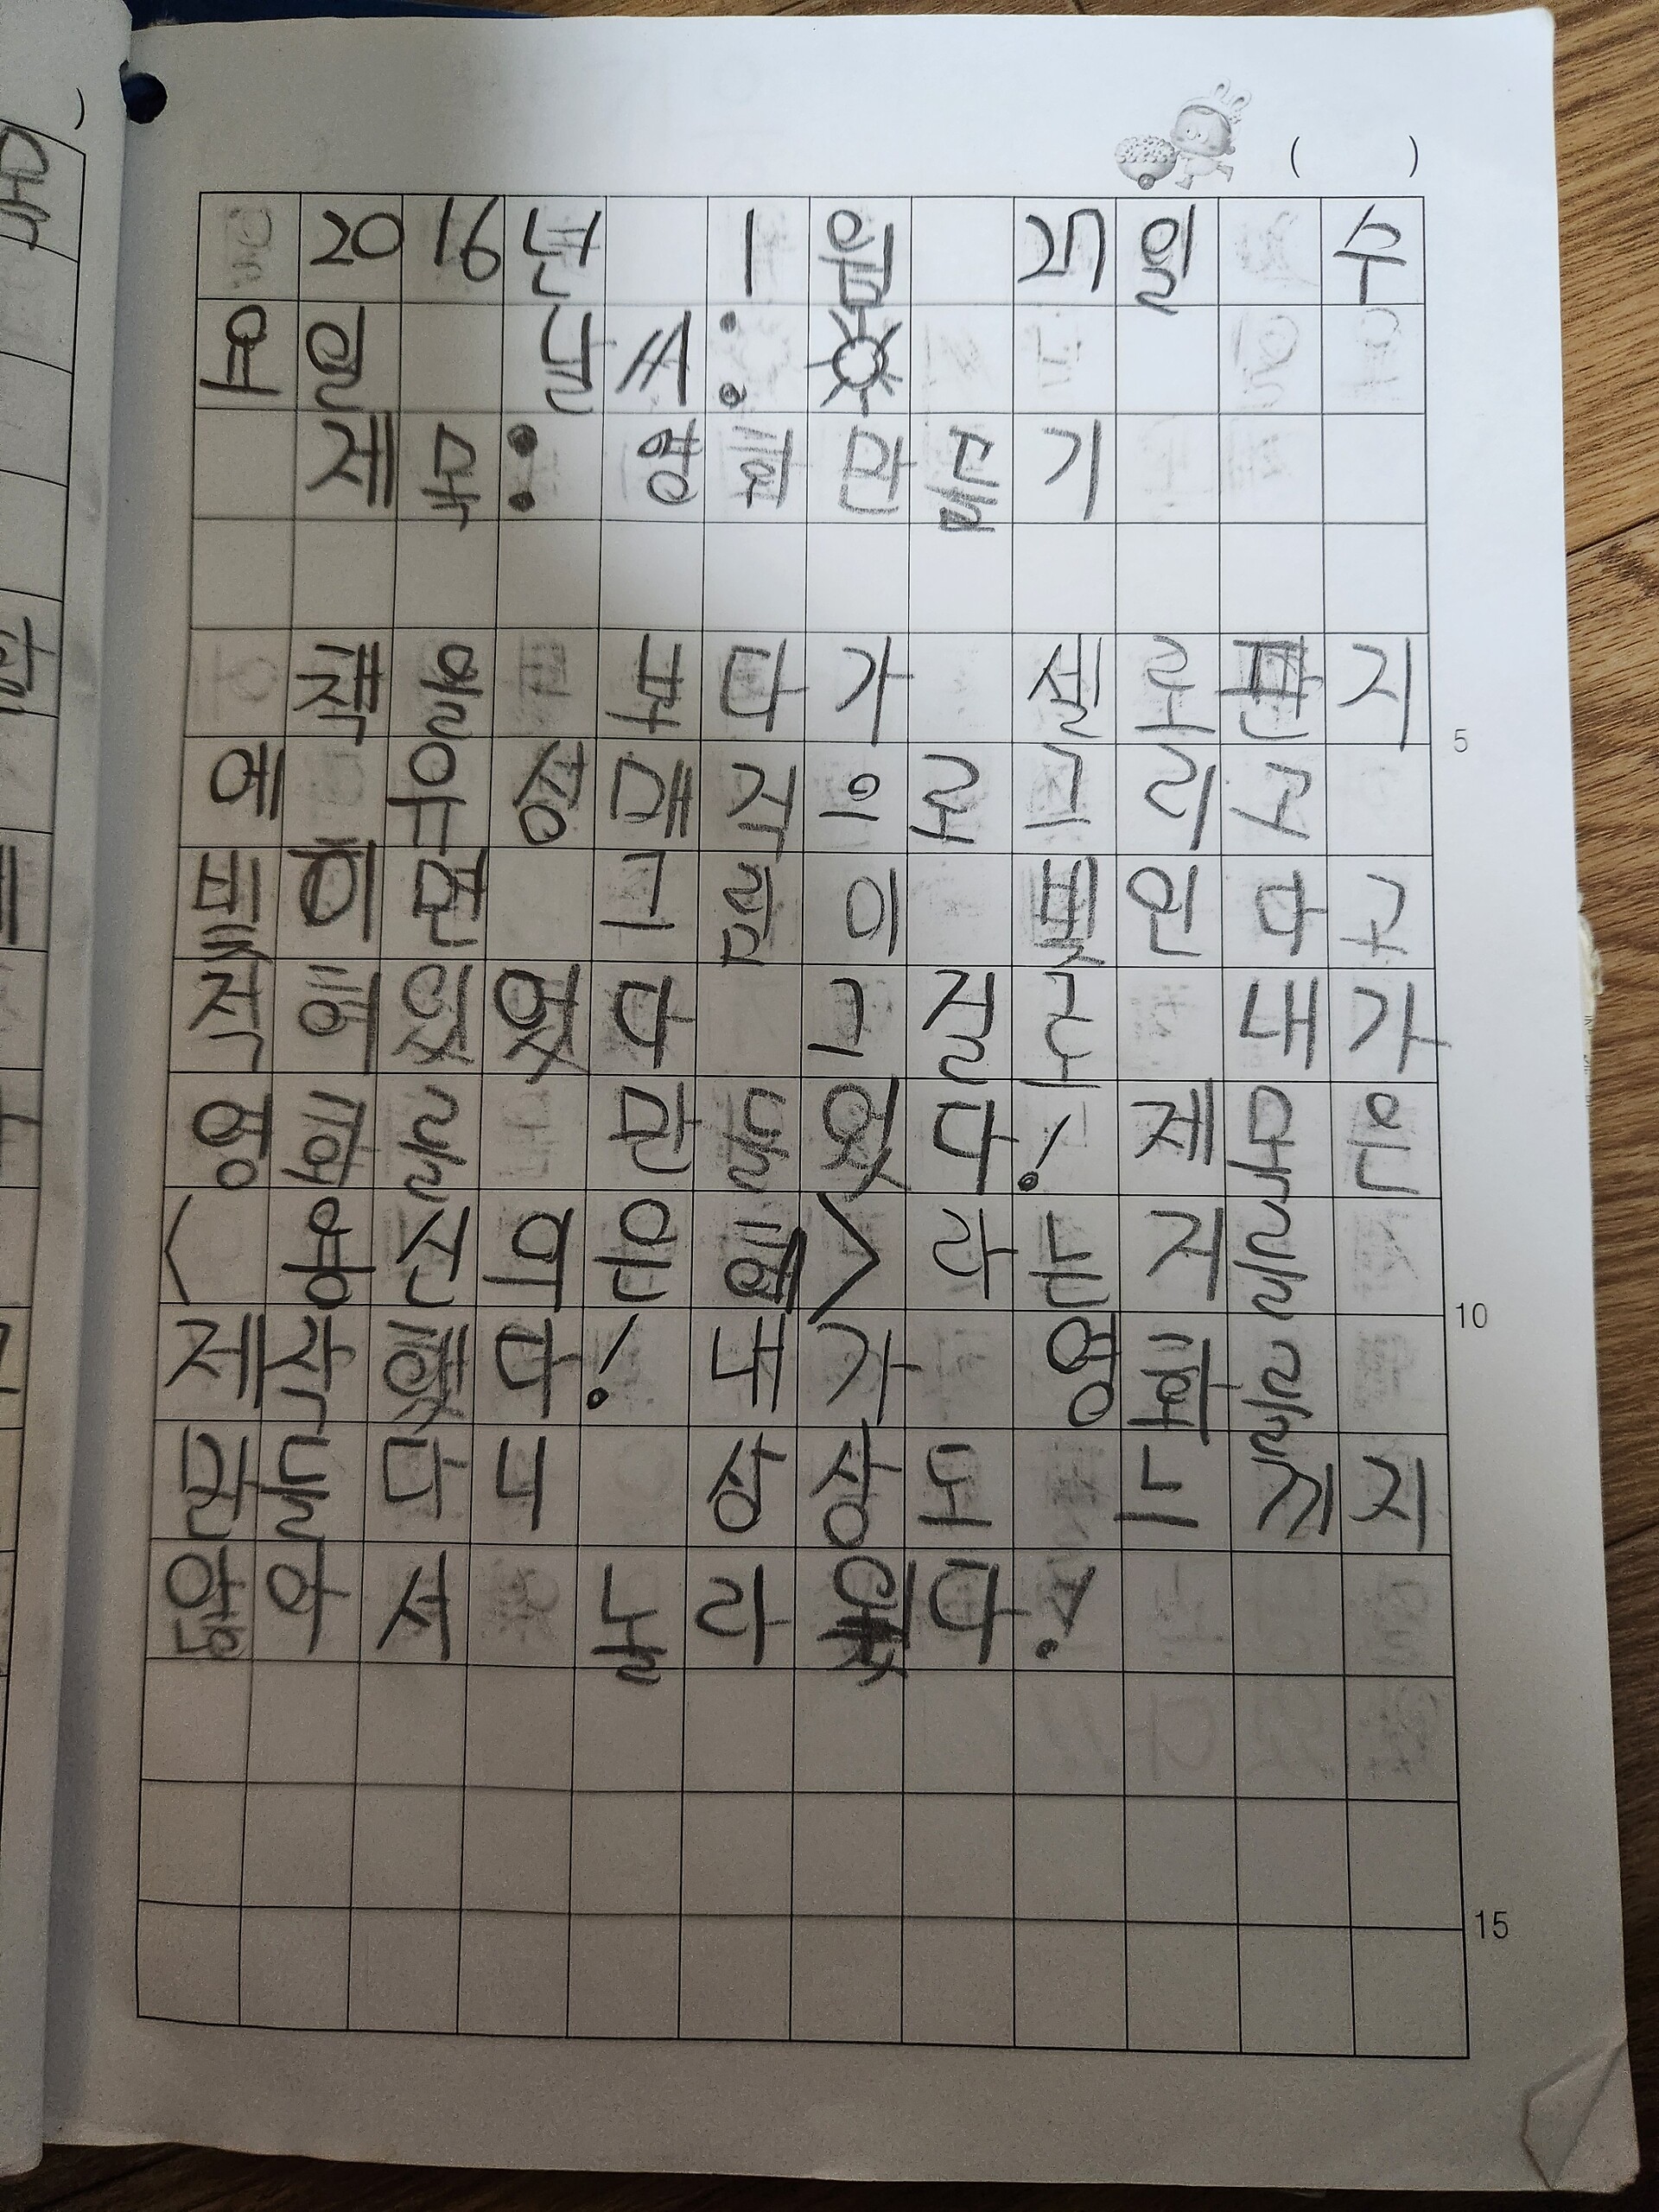 ( )
2016년 1월 27일 수
요일 날씨:
제목: 영화 만들기
책을 보다가 셀로판지
에 유성매직으로 그리고
빛히면 그림이 빛인다고
적혀있엿다 그걸로 내가
영화를 만들엇다! 제목은
< 용신의은혜> 라는 거를
제작햇다! 내가 영화를
만들다니 상상도 느끼지
않아서 놀라웠다!
5
10
15